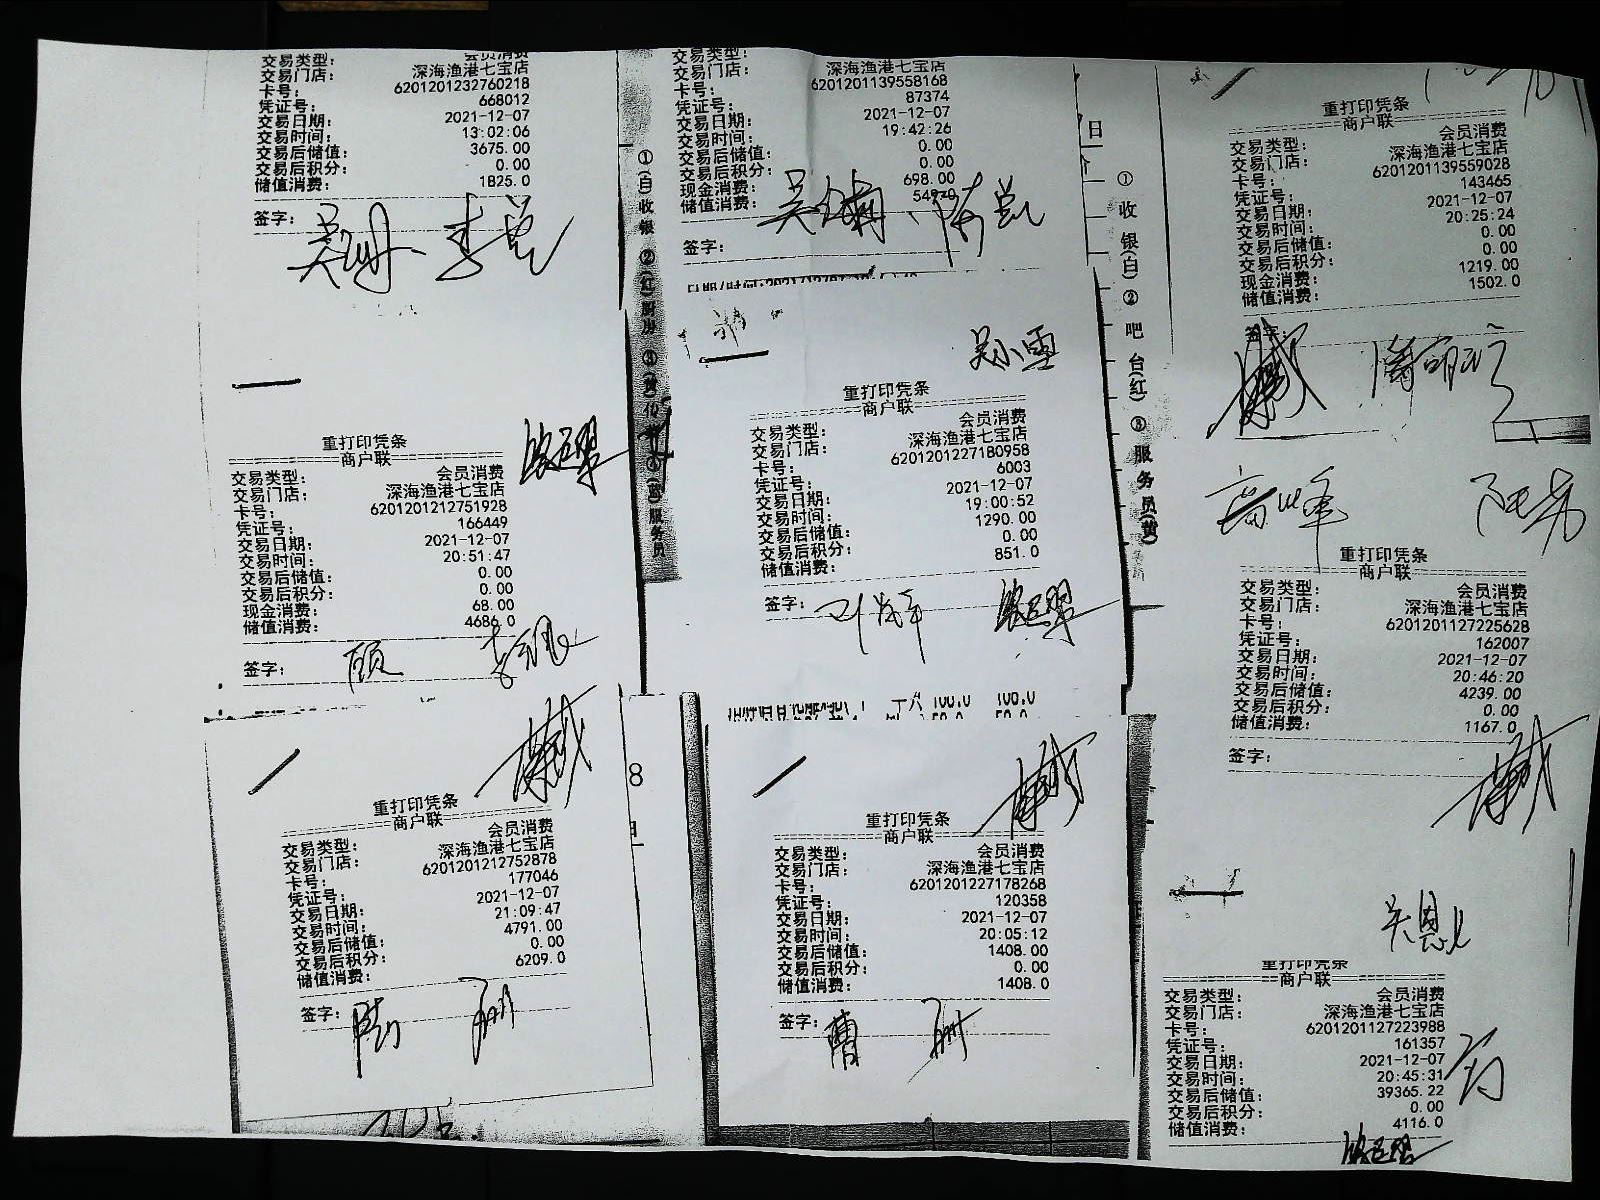 交易类型： 会员消费
交易门店： 深海渔港七宝店
卡号： 6201201232760218
凭证号： 668012
交易日期： 2021-12-07
交易时间： 13:02:06
交易后储值： 3675.00
交易后积分： 0.00
储值消费： 1825.0
签字：
重打印凭条
商户联
交易类型： 会员消费
交易门店： 深海渔港七宝店
卡号： 6201201212751928
凭证号： 166449
交易日期： 2021-12-07
交易时间： 20:51:47
交易后储值： 0.00
交易后积分： 0.00
现金消费： 68.00
储值消费： 4686.0
签字： 顾
重打印凭条
商户联
交易类型： 会员消费
交易门店： 深海渔港七宝店
卡号： 6201201212752878
凭证号： 177046
交易日期： 2021-12-07
交易时间： 21:09:47
交易后储值： 4791.00
交易后积分： 0.00
储值消费： 6209.0
签字：
8
①(白)收银 ②(红)厨房 服务员
交易类型：
交易门店： 深海渔港七宝店
卡号： 6201201139558168
凭证号： 87374
交易日期： 2021-12-07
交易时间： 19:42:26
交易后储值： 0.00
交易后积分： 0.00
现金消费： 698.00
储值消费：
签字：
吴小雪
重打印凭条
商户联
交易类型： 会员消费
交易门店： 深海渔港七宝店
卡号： 6201201227180958
凭证号： 6003
交易日期： 2021-12-07
交易时间： 19:00:52
交易后储值： 1290.00
交易后积分： 0.00
储值消费： 851.0
签字：
100.0 100.0
重打印凭条
商户联
交易类型： 会员消费
交易门店： 深海渔港七宝店
卡号： 6201201227178268
凭证号： 120358
交易日期： 2021-12-07
交易时间： 20:05:12
交易后储值： 1408.00
交易后积分： 0.00
储值消费： 1408.0
签字： 曹
日
①收银(白) ②吧台(红) ③服务员(黄)
重打印凭条
商户联
交易类型： 会员消费
交易门店： 深海渔港七宝店
卡号： 6201201139559028
凭证号： 143465
交易日期： 2021-12-07
交易时间： 20:25:24
交易后储值： 0.00
交易后积分： 0.00
现金消费： 1219.00
储值消费： 1502.0
签字：
高峰
重打印凭条
商户联
交易类型： 会员消费
交易门店： 深海渔港七宝店
卡号： 6201201127225628
凭证号： 162007
交易日期： 2021-12-07
交易时间： 20:46:20
交易后储值： 4239.00
交易后积分： 0.00
储值消费： 1167.0
签字：
重打印凭条
商户联
交易类型： 会员消费
交易门店： 深海渔港七宝店
卡号： 6201201127223988
凭证号： 161357
交易日期： 2021-12-07
交易时间： 20:45:31
交易后储值： 39365.22
交易后积分： 0.00
储值消费： 4116.0